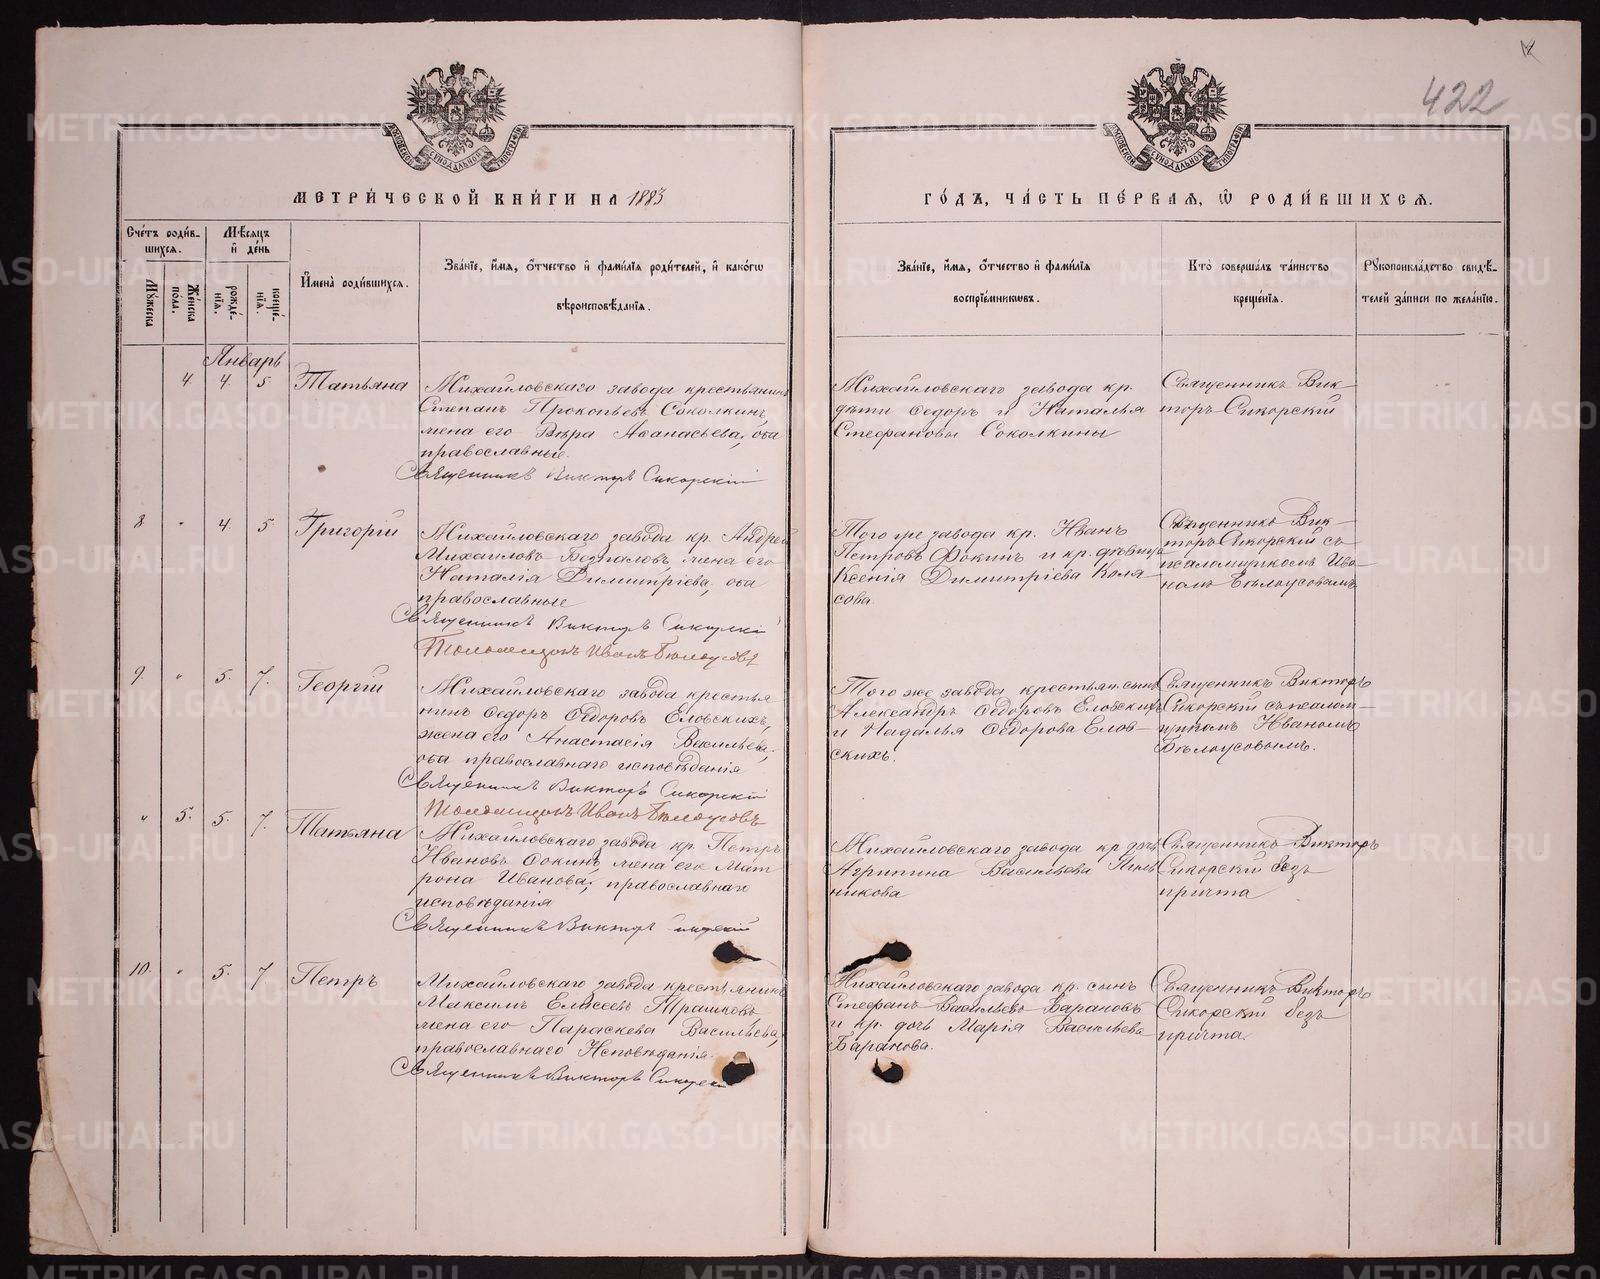 422
МЕТРИ́ЧЕСКОЙ КНИ́ГИ НА 1883
ГО́ДЪ, ЧА́СТЬ ПЕ́РВАѦ, Ѡ҆ РОДИ́ВШИХСѦ.
Сче́тъ роди́в-
шихсѧ.
Мꙋ́жеска
Же́нска
пола.
Мѣ́сѧцъ
и҆ де́нь
рожде́-
нїѧ.
креще́-
нїѧ.
И҆мена̀ роди́вшихсѧ.
Зва́нїе, и҆́мѧ, ѻ҆́тчество и҆ фами́лїѧ роди́телей, и҆ како́гѡ
вѣроисповѣ́данїѧ.
Зва́нїе, и҆́мѧ, ѻ҆́тчество и҆ фами́лїѧ
воспрїе́мникѡвъ.
Кто̀ соверша́лъ та́инство
креще́нїѧ.
Рꙋкоприкла́дство свидѣ́-
телей за́писи по жела́нїю.
Январь
4 4. 5 Татьяна
Михайловскаго завода крестьянинъ
Степанъ Прокопьевъ Соколкинъ,
жена его Вѣра Аѳанасьева, оба
православные.
Священникъ Викторъ Сикорскій
Михайловскаго завода кр.
дѣти Ѳедоръ и Наталья
Стефановы Соколкины
Священникъ Вик-
торъ Сикорскій
8 " 4. 5. Григорій
Михайловскаго завода кр. Андрей
Михаиловъ Безпаловъ, жена его
Наталія Димитріева, оба
православные
Священникъ Викторъ Сикорскій
Псаломщикъ Иванъ Бѣлоусовъ
Того же завода кр. Иванъ
Петровъ Ѳокинъ и кр. дѣвица
Ксенія Димитріева Коля-
сова.
Священникъ Вик-
торъ Сикорскій съ
псаломщикомъ Ива-
номъ Бѣлоусовымъ
9. " 5. 7. Георгій
Михайловскаго завода крестья
нинъ Ѳедоръ Ѳедоровъ Еловскихъ,
жена его Анастасія Васильева,
оба православнаго исповѣданія
Священникъ Викторъ Сикорскій
Псаломщикъ Иванъ Бѣлоусовъ
Того же завода крестьян. сынъ
Александръ Ѳедоровъ Еловскихъ
и Надалья Ѳедорова Елов-
скихъ.
Священникъ Викторъ
Сикорскій съ псалом-
щикомъ Иваномъ
Бѣлоусовымъ.
" 5. 5. 7. Татьяна
Михайловскаго завода кр. Петръ
Ивановъ Ѳокинъ, жена его Мат
рона Иванова, православнаго
исповѣданія
Священникъ Викторъ Сикорскій
Михайловскаго завода кр. дочь
Агрипина Васильева
никова
Священникъ Викторъ
Сикорскій безъ
причта
10. " 5. 7 Петръ
Михайловскаго завода крестьянинъ
Максимъ Елисеевъ Трашковъ
жена его Параскева Васильева,
православнаго Исповѣданія.
Священникъ Викторъ Сикорскій
Михайловскаго завода кр. сынъ
Стефанъ Васильевъ Барановъ
и кр. дочь Марія Васильева
Баранова.
Священникъ Викторъ
Сикорскій безъ
причта.
METRIKI.GASO-URAL.RU